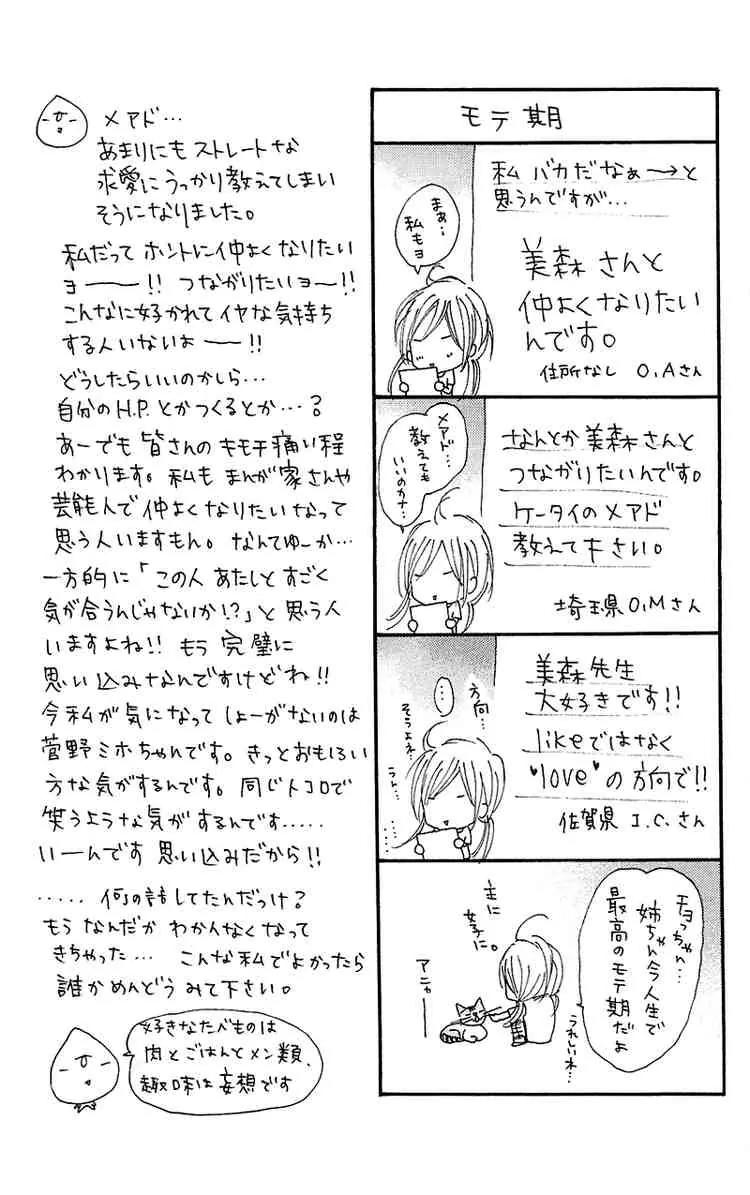 モテ期
私 バカだなぁ──→と
思うんですが…
美森さんと
仲よくなりたい
んです。
住所なし O,Aさん
まぁ…
私もヨ
なんとか美森さんと
つながりたいんです。
ケータイのメアド
教えて下さい。
埼玉県O,Mさん
メアド…
教えても
いいのかナ…
美森先生
大好きです!!
likeではなく
"love"の方向で!!
佐賀県 I.C.さん
方向…
…
そうよね…
うん…
チョっちゃん…
姉ちゃん今人生で
最高のモテ期だよ
うれしいネ…
主に
女子に。
アニャ──
メアド…
あまりにもストレートな
求愛にうっかり教えてしまい
そうになりました。
私だって ホントに仲よくなりたい
ヨ───!! つながりたいヨ─!!
こんなに好かれてイヤな気持ち
する人いないよ──!!
どうしたらいいのかしら…
自分のH.P.とかつくるとか…?
あーでも皆さんのキモチ痛い程
わかります。私もまんが家さんや
芸能人で仲よくなりたいなって
思う人いますもん。なんてゆーか…
一方的に「この人あたしとすごく
気が合うんじゃないか!?」と思う人
いますよね!! もう完璧に
思い込みなんですけどね!!
今私が気になってしょーがないのは
菅野ミホちゃんです。きっとおもしろい
方な気がするんです。同じトコロで
笑うような気がするんです.....
いーんです 思い込みだから!!
..... 何の話してたんだっけ?
もう なんだか わかんなくなって
きちゃった… こんな私でよかったら
誰かめんどうみて下さい。
好きなたべものは
肉とごはんとメン類、
趣味は妄想です